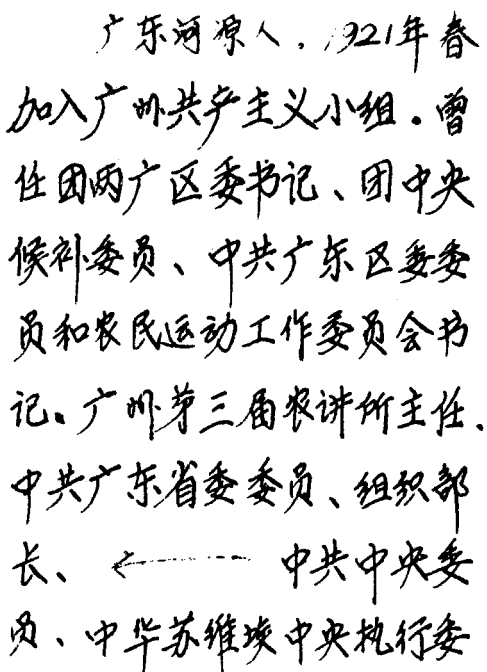 广东河源人，1921年春
加入广州共产主义小组。曾
任团两广区委书记、团中央
候补委员、中共广东区委委
员和农民运动工作委员会书
记。广州第三届农讲所主任、
中共广东省委委员、组织部
长、← 中共中央委
员、中华苏维埃中央执行委